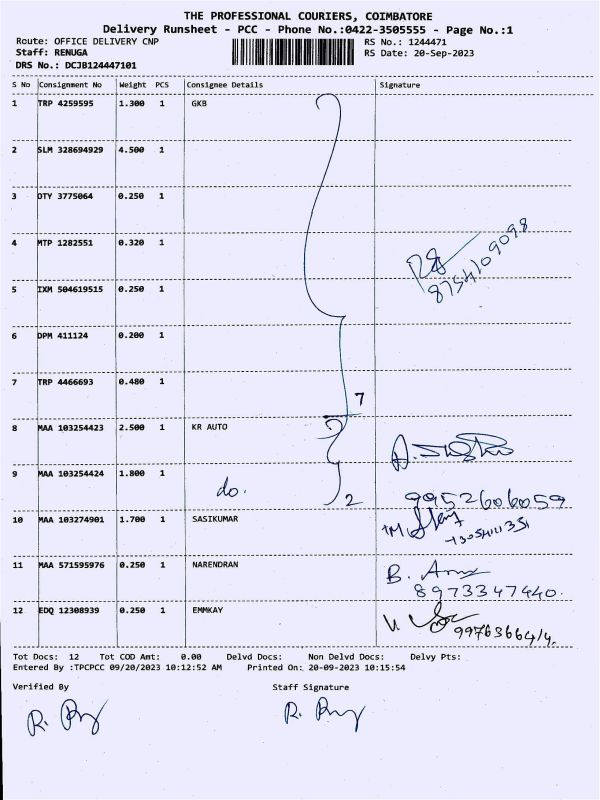 THE PROFESSIONAL COURIERS, COIMBATORE
Delivery Runsheet - PCC - Phone No.:0422-3505555 - Page No.:1
Route: OFFICE DELIVERY CNP RS No.: 1244471
Staff: RENUGA RS Date: 20-Sep-2023
DRS No.: DCJB124447101
S No Consignment No Weight PCS Consignee Details Signature
1 TRP 4259595 1.300 1 GKB
2 SLM 328694929 4.500 1
3 OTY 3775064 0.250 1
4 MTP 1282551 0.320 1
8754109098
5 IXM 504619515 0.250 1
6 DPM 411124 0.200 1
7 TRP 4466693 0.480 1
7
8 MAA 103254423 2.500 1 KR AUTO
9 MAA 103254424 1.800 1
do. 2 9952606059
10 MAA 103274901 1.700 1 SASIKUMAR
11 MAA 571595976 0.250 1 NARENDRAN
8973347440.
12 EDQ 12308939 0.250 1 EMMKAY
Tot Docs: 12 Tot COD Amt: 0.00 Delvd Docs: Non Delvd Docs: Delvy Pts:
Entered By :TPCPCC 09/20/2023 10:12:52 AM Printed On: 20-09-2023 10:15:54
Verified By Staff Signature